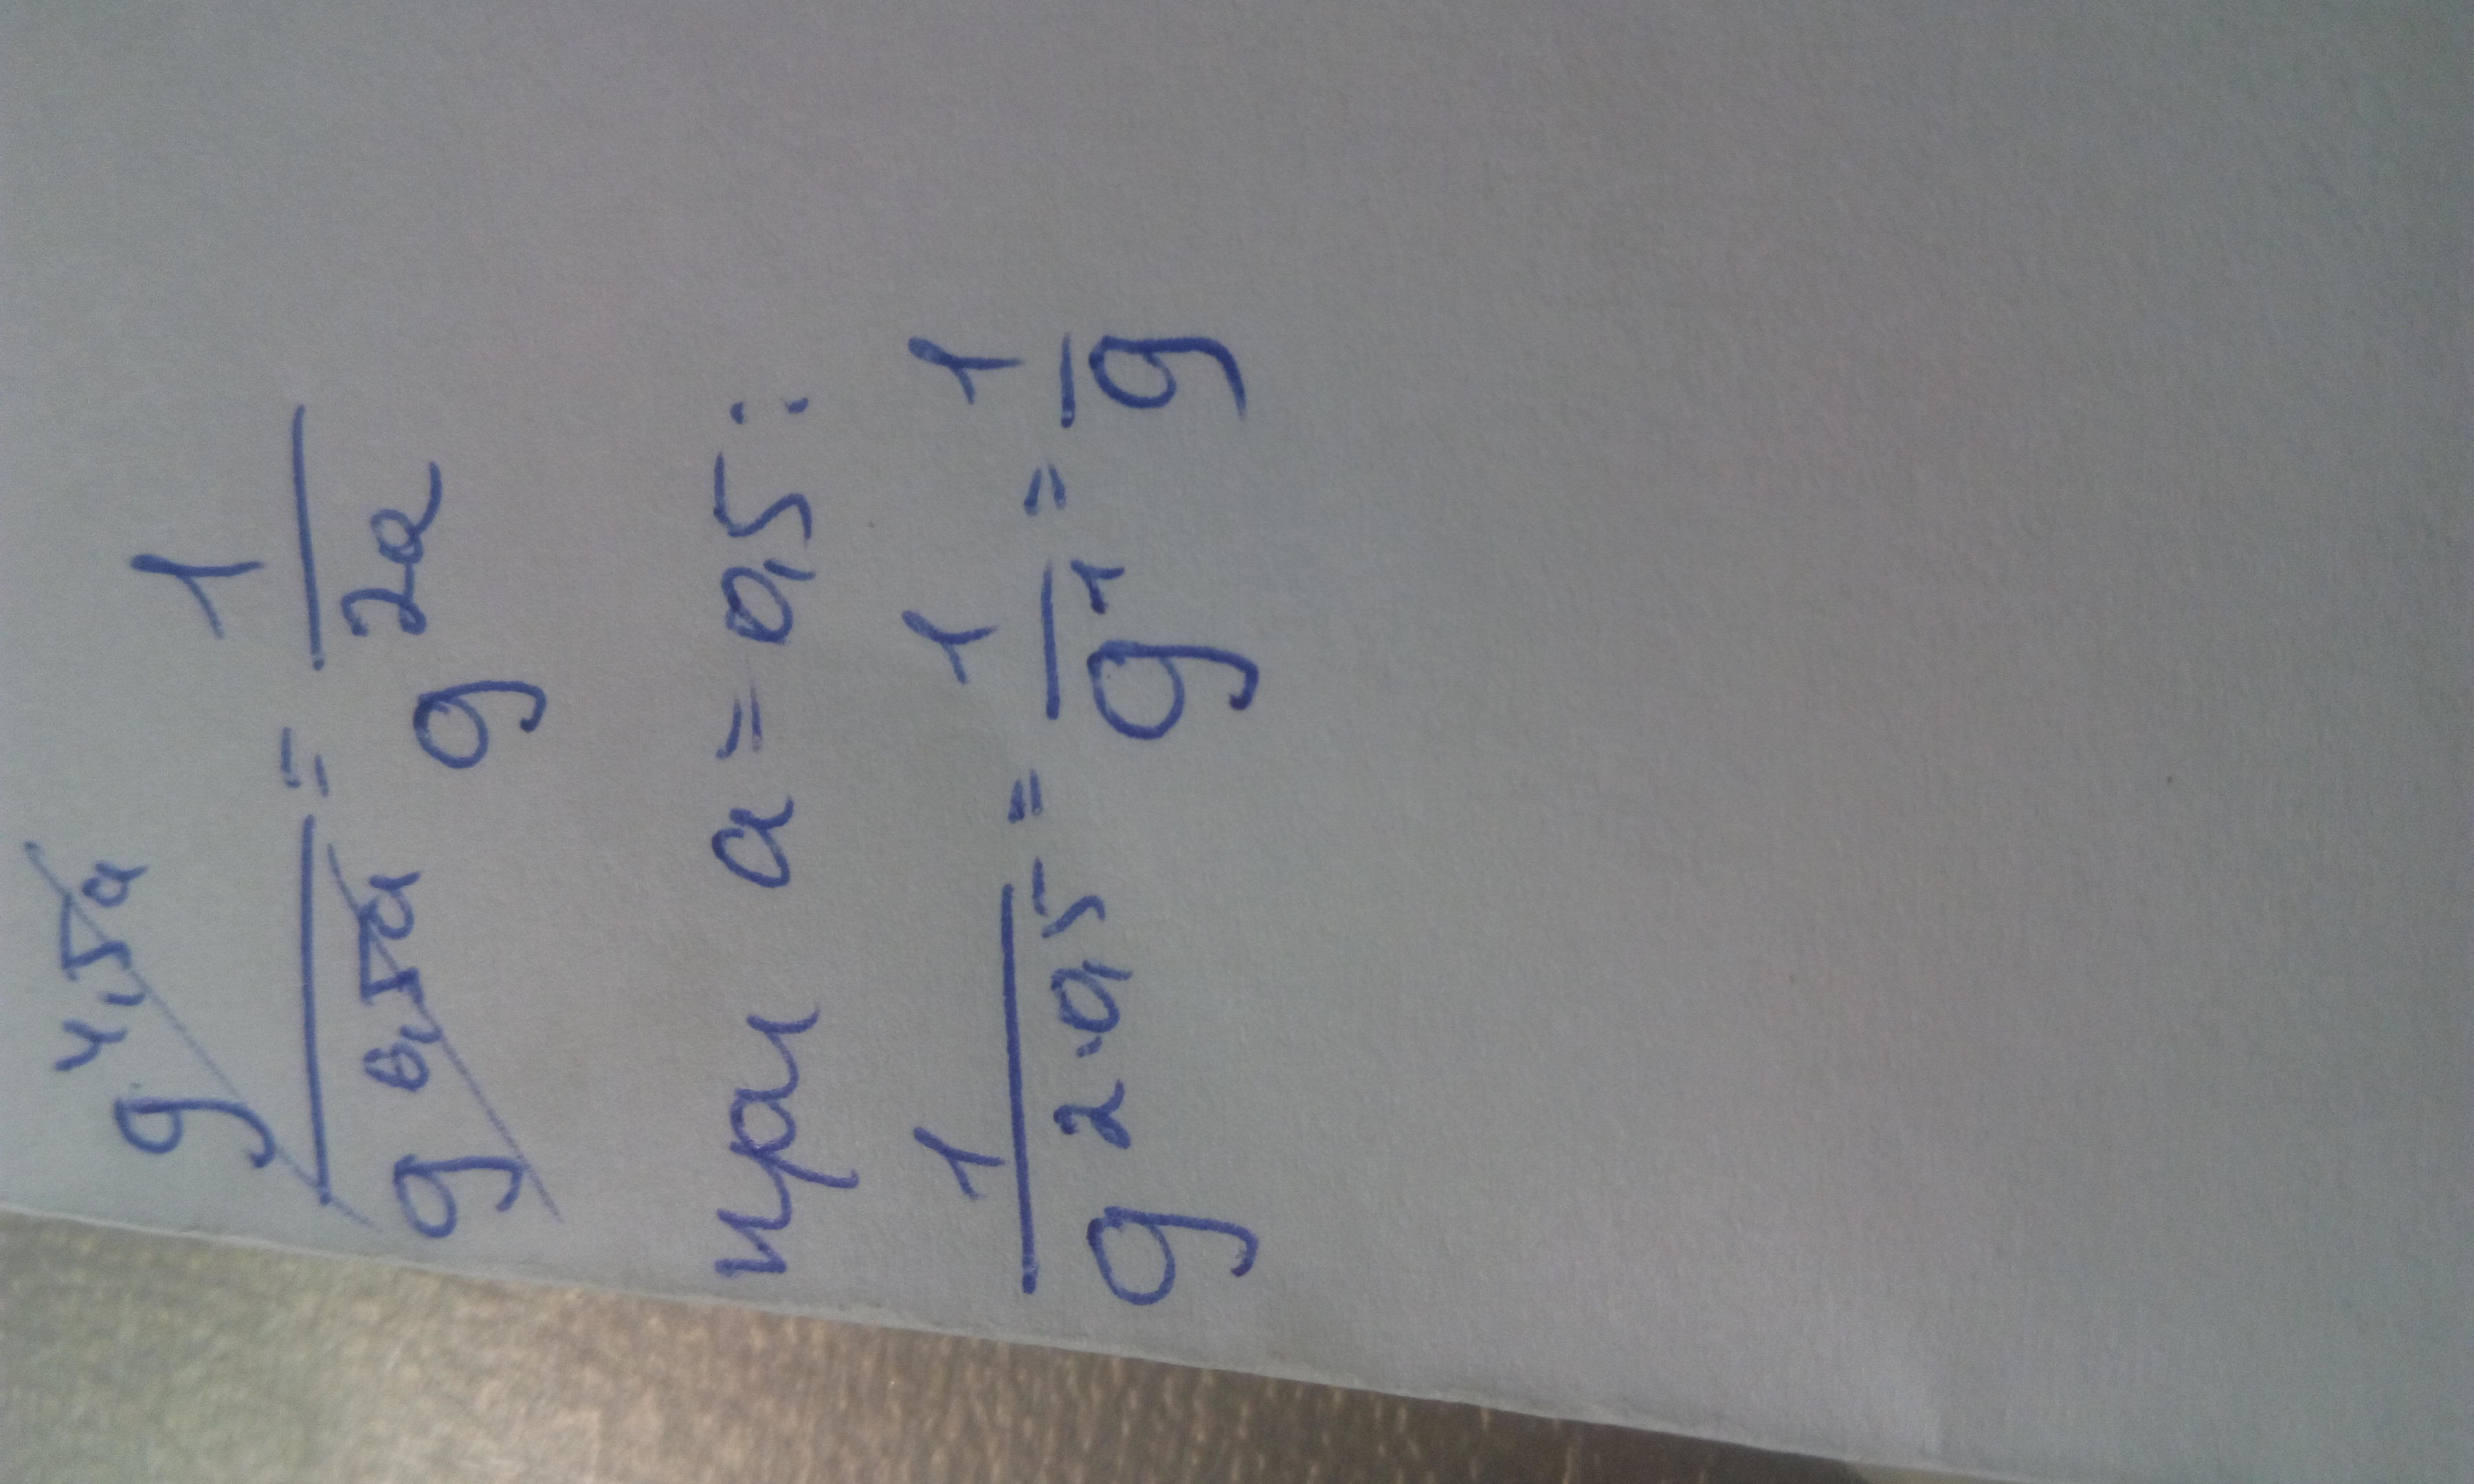 9^4,5a / 9^6,5a = 1 / 9^2a
при a = 0,5:
1 / 9^2·0,5 = 1 / 9^1 = 1 / 9